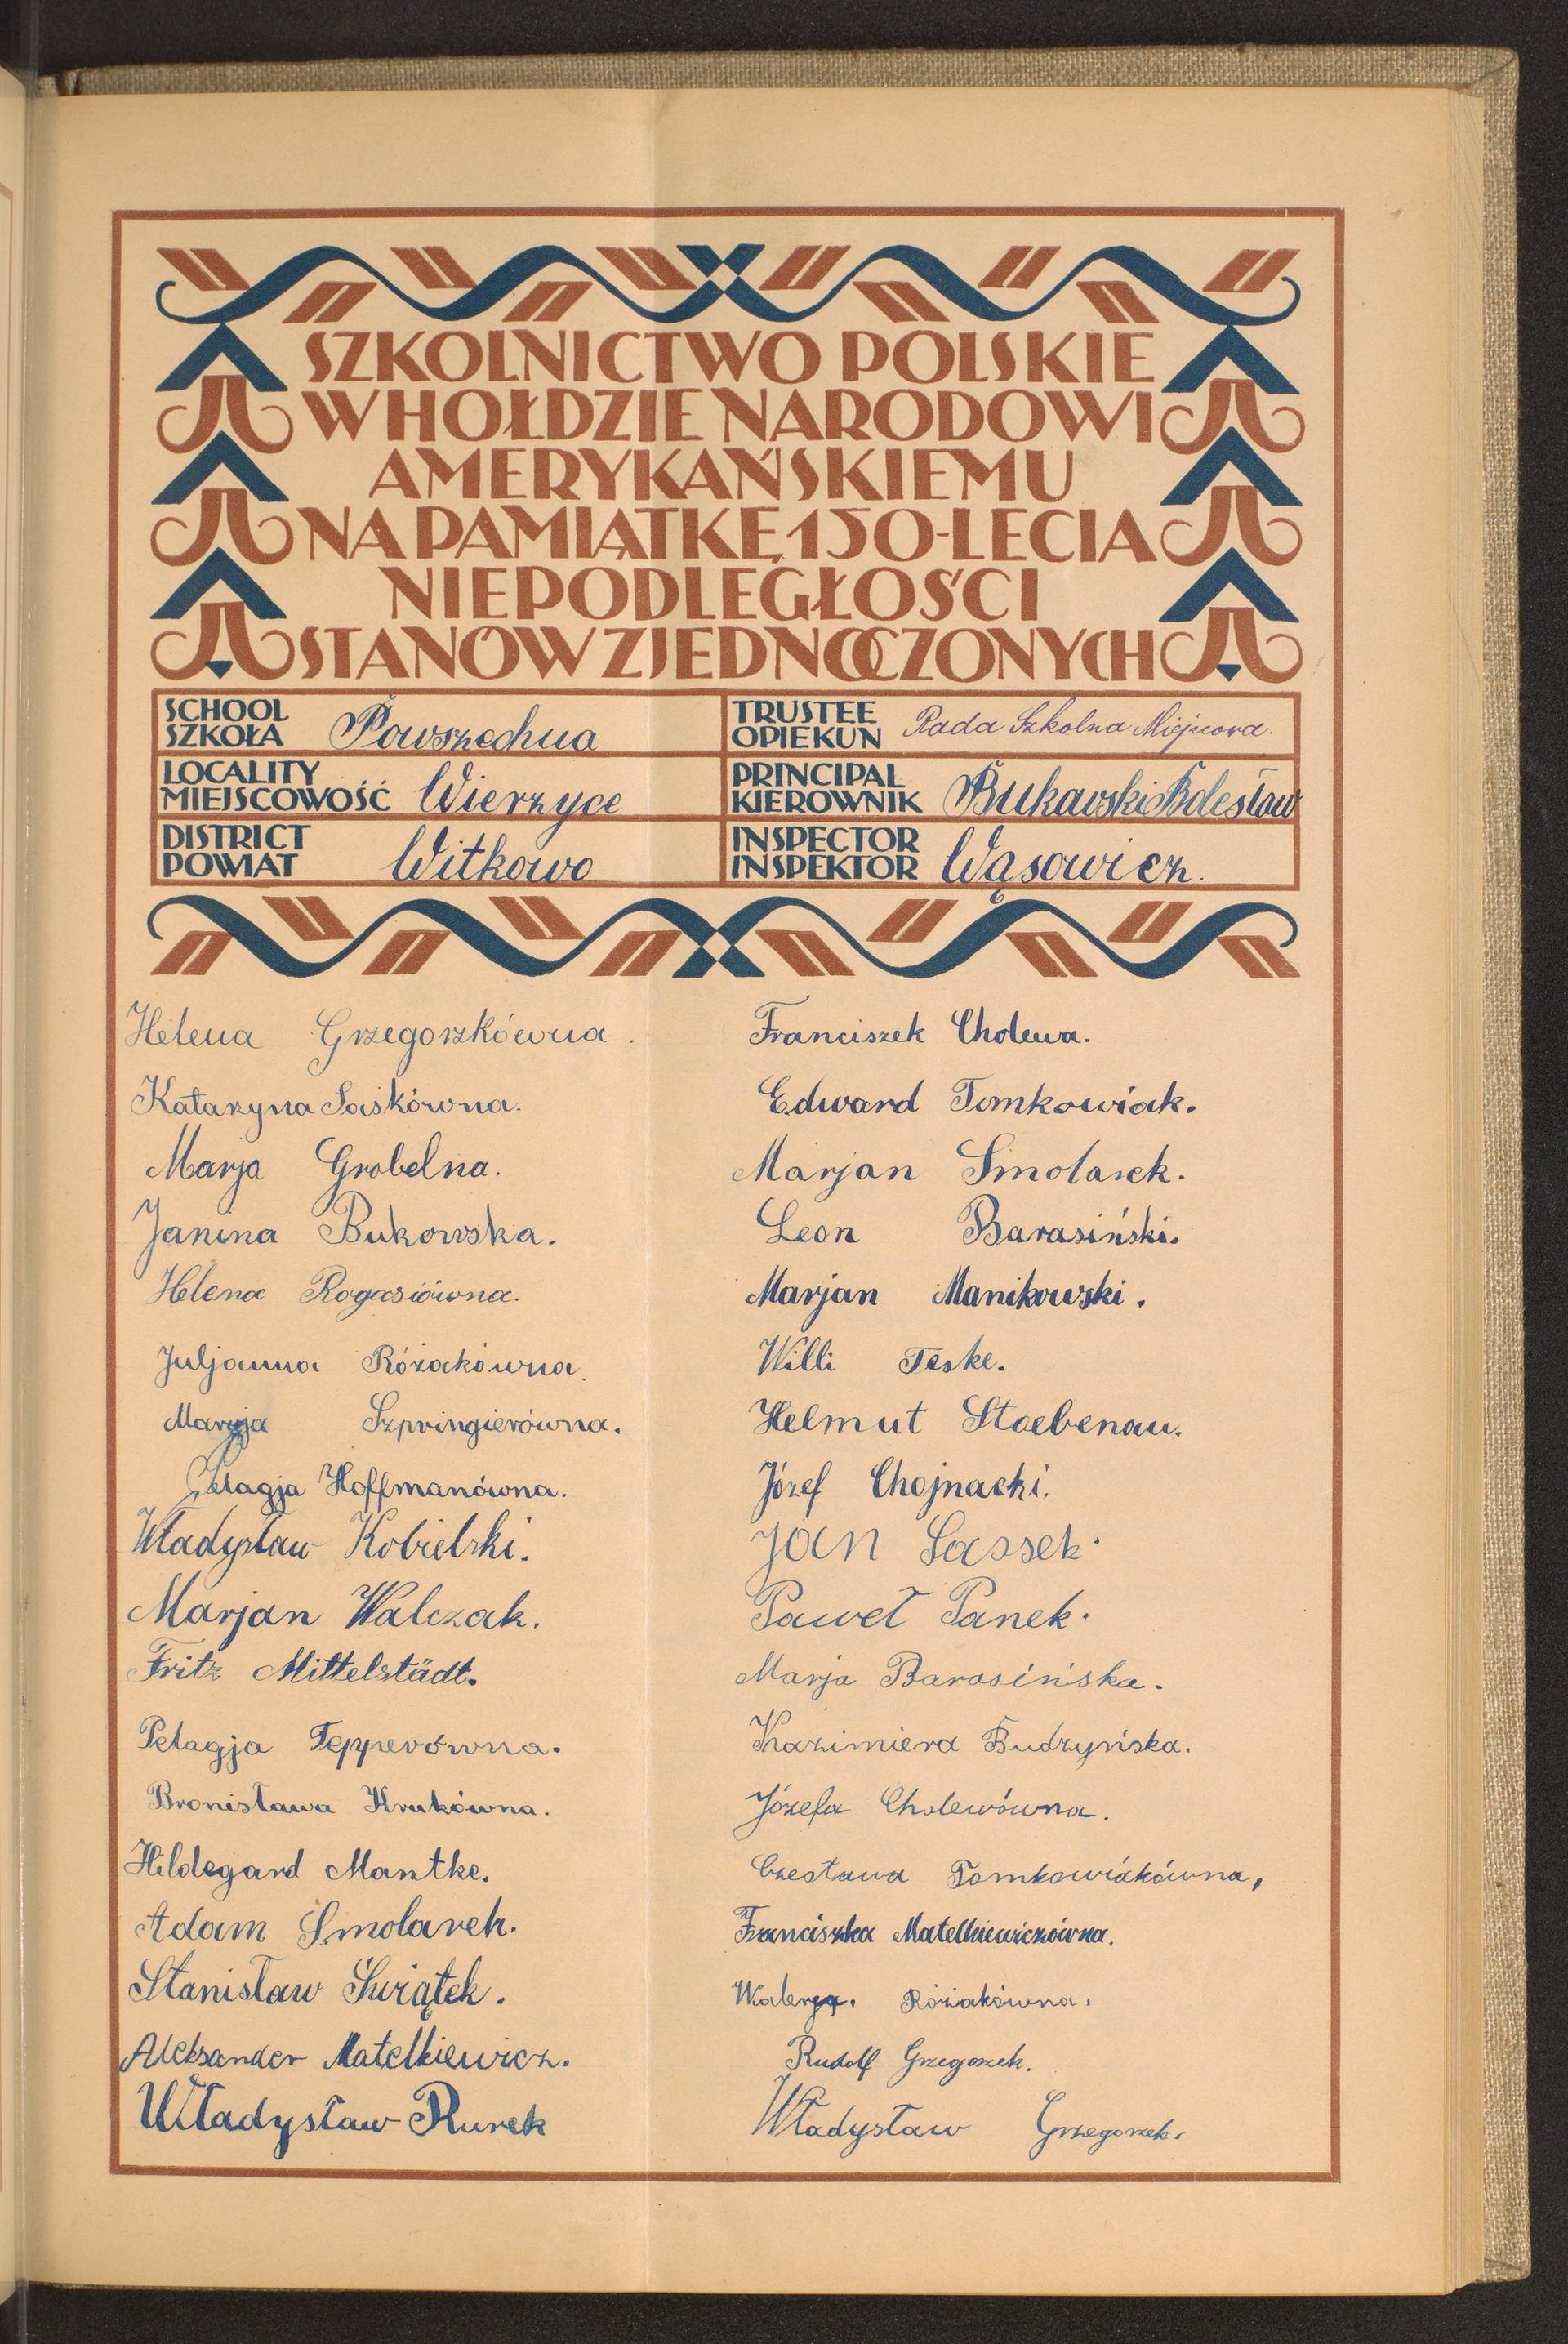 SZKOLNICTWO POLSKIE
W HOŁDZIE NARODOWI
AMERYKAŃSKIEMU
NA PAMIĄTKĘ 150-LECIA
NIEPODLEGŁOŚCI
STANÓW ZJEDNOCZONYCH
SCHOOL
SZKOŁA Powszechna
TRUSTEE
OPIEKUN Rada Szkolna Miejscowa.
LOCALITY
MIEJSCOWOŚĆ Wierzyce
PRINCIPAL
KIEROWNIK Bukowski Bolesław
DISTRICT
POWIAT Witkowo
INSPECTOR
INSPEKTOR Wąsowicz.
Helena Grzegorzkówna.
Katarzyna Saskówna.
Marja Grobelna.
Janina Bukowska.
Helena Rogasiówna.
Juljanna Różakówna.
Maryja Szpringierówna.
Pelagja Hoffmanówna.
Władysław Kobielski.
Marjan Walczak.
Fritz Mittelstädt.
Pelagja Tepperówna.
Bronisława Krukówna.
Hildegard Mantke.
Adam Smolarek.
Stanisław Świątek.
Aleksander Matelkiewicz.
Władysław Rurek
Franciszek Cholewa.
Edward Tomkowiak.
Marjan Smolarek.
Leon Barasiński.
Marjan Manikowski.
Willi Teske.
Helmut Stoebenau.
Józef Chojnacki.
Jan Sassek.
Paweł Panek.
Marja Barasińska.
Kazimiera Budzyńska.
Józefa Cholewówna.
Czesława Tomkowiakówna,
Franciszka Matelkiewiczówna.
Walerja. Różakówna.
Rudolf Grzegorzek.
Władysław Grzegorzek.